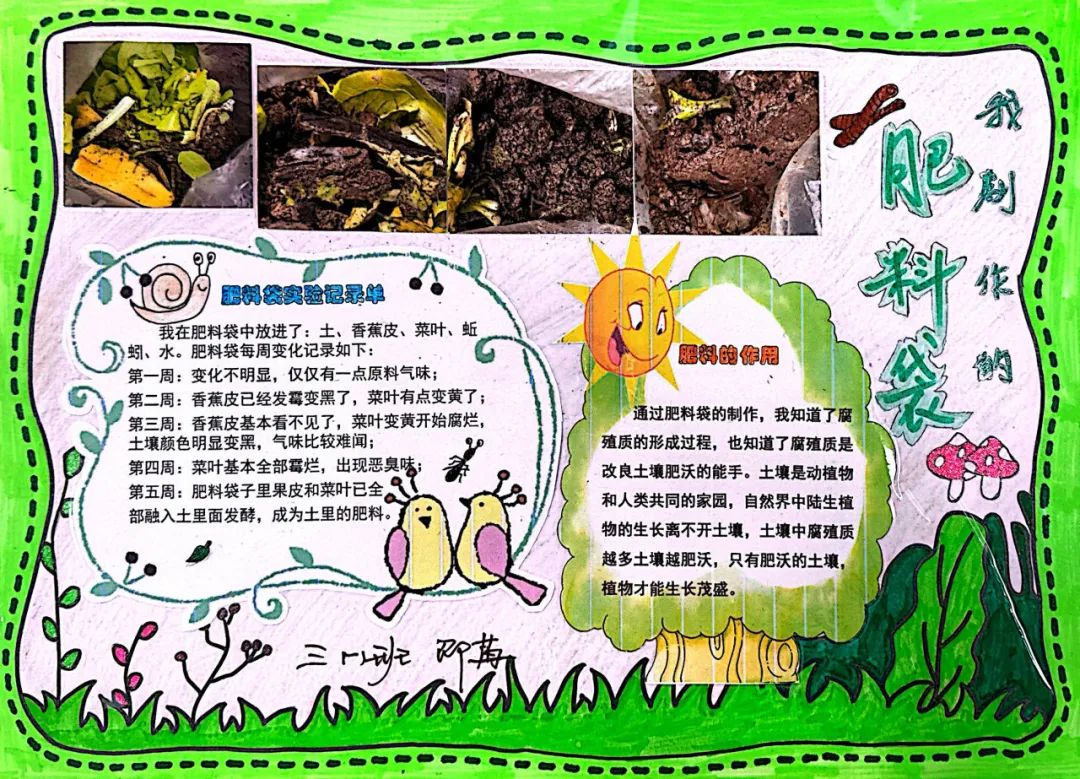 我制作的
肥料袋
肥料袋实验记录单
我在肥料袋中放进了：土、香蕉皮、菜叶、蚯
蚓、水。肥料袋每周变化记录如下：
第一周：变化不明显，仅仅有一点原料气味；
第二周：香蕉皮已经发霉变黑了，菜叶有点变黄了；
第三周：香蕉皮基本看不见了，菜叶变黄开始腐烂，
土壤颜色明显变黑，气味比较难闻；
第四周：菜叶基本全部霉烂，出现恶臭味；
第五周：肥料袋子里果皮和菜叶已全
部融入土里面发酵，成为土里的肥料。
肥料的作用
通过肥料袋的制作，我知道了腐
殖质的形成过程，也知道了腐殖质是
改良土壤肥沃的能手。土壤是动植物
和人类共同的家园，自然界中陆生植
物的生长离不开土壤，土壤中腐殖质
越多土壤越肥沃，只有肥沃的土壤，
植物才能生长茂盛。
三 班 邓